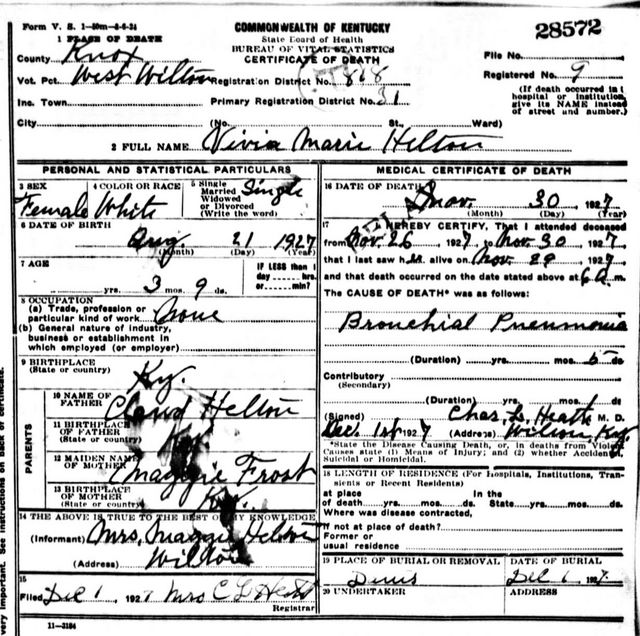 Form V. S. 1-50m-6-6-24
COMMONWEALTH OF KENTUCKY
28572
1 PLACE OF DEATH
State Board of Health
BUREAU OF VITAL STATISTICS
CERTIFICATE OF DEATH
County Knox
File No.
Vot. Pct. West Wilton Registration District No. 818
Registered No. 9
Inc. Town Primary Registration District No. 31
(If death occurred in
hospital or institution
give its NAME instead
of street and number.)
City (No. St., Ward)
2 FULL NAME Vivia Marie Helton
PERSONAL AND STATISTICAL PARTICULARS
3 SEX Female
4 COLOR OR RACE White
5 Single Married Widowed or Divorced (Write the word) Single
6 DATE OF BIRTH
Aug. 21 1927
(Month) (Day) (Year)
7 AGE
yrs. 3 mos. 9 ds.
IF LESS than 1
day hrs.
or min.?
8 OCCUPATION
(a) Trade, profession or
particular kind of work None
(b) General nature of industry,
business or establishment in
which employed (or employer)
9 BIRTHPLACE
(State or country) Ky.
PARENTS
10 NAME OF
FATHER Claud Helton
11 BIRTHPLACE
OF FATHER
(State or country)
12 MAIDEN NAME
OF MOTHER Maggie Frost
13 BIRTHPLACE
OF MOTHER
(State or country) Ky.
14 THE ABOVE IS TRUE TO THE BEST OF MY KNOWLEDGE
(Informant) Mrs. Maggie Helton
(Address) Wilton
15
Filed Dec 1, 1927 Mrs C L Heath
Registrar
11-3184
MEDICAL CERTIFICATE OF DEATH
16 DATE OF DEATH Nov. 30 1927
(Month) (Day) (Year)
17 I HEREBY CERTIFY, That I attended deceased
from Nov. 26 1927, to Nov. 30 1927,
that I last saw h alive on Nov. 29 1927,
and that death occurred on the date stated above at 6 a m.
The CAUSE OF DEATH* was as follows:
Bronchial Pneumonia
(Duration) yrs. mos. 5 ds
Contributory
(Secondary)
(Duration) yrs. mos. ds
(Signed) Chas. L. Heath M. D.
Dec. 1st 1927 (Address) Wilton, Ky.
*State the Disease Causing Death, or, in deaths from Violent
Causes state (1) Means of Injury; and (2) whether Accidental,
Suicidal or Homicidal.
18 LENGTH OF RESIDENCE (For Hospitals, Institutions, Tran-
sients or Recent Residents)
at place In the
of death yrs. mos. ds. State yrs. mos. ds
Where was disease contracted,
if not at place of death?
Former or
usual residence
19 PLACE OF BURIAL OR REMOVAL
DATE OF BURIAL
Dec 1 1927
20 UNDERTAKER
ADDRESS
very important. See instructions on back of certificate.